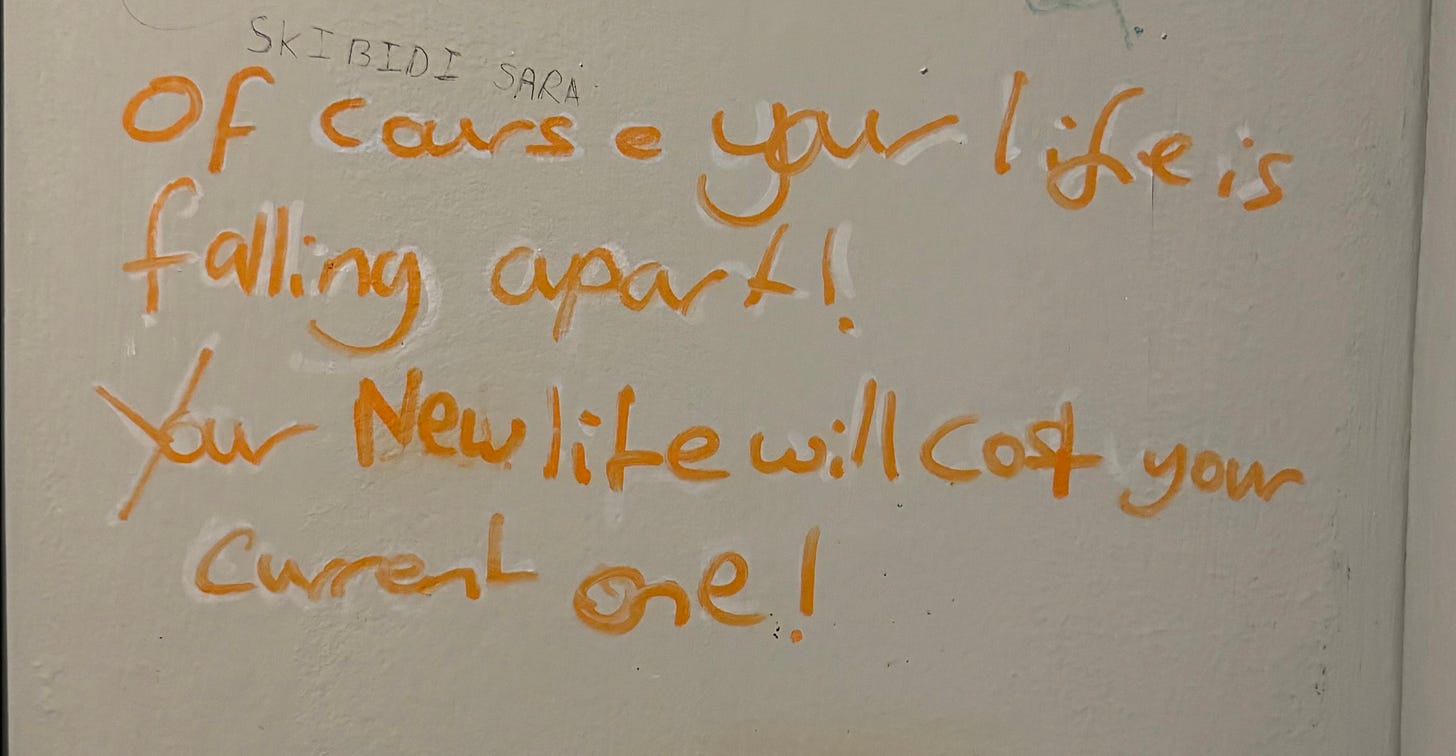 SKIBIDI SARA
Of course your life is
falling apart!
Your New life will cost your
Current one!